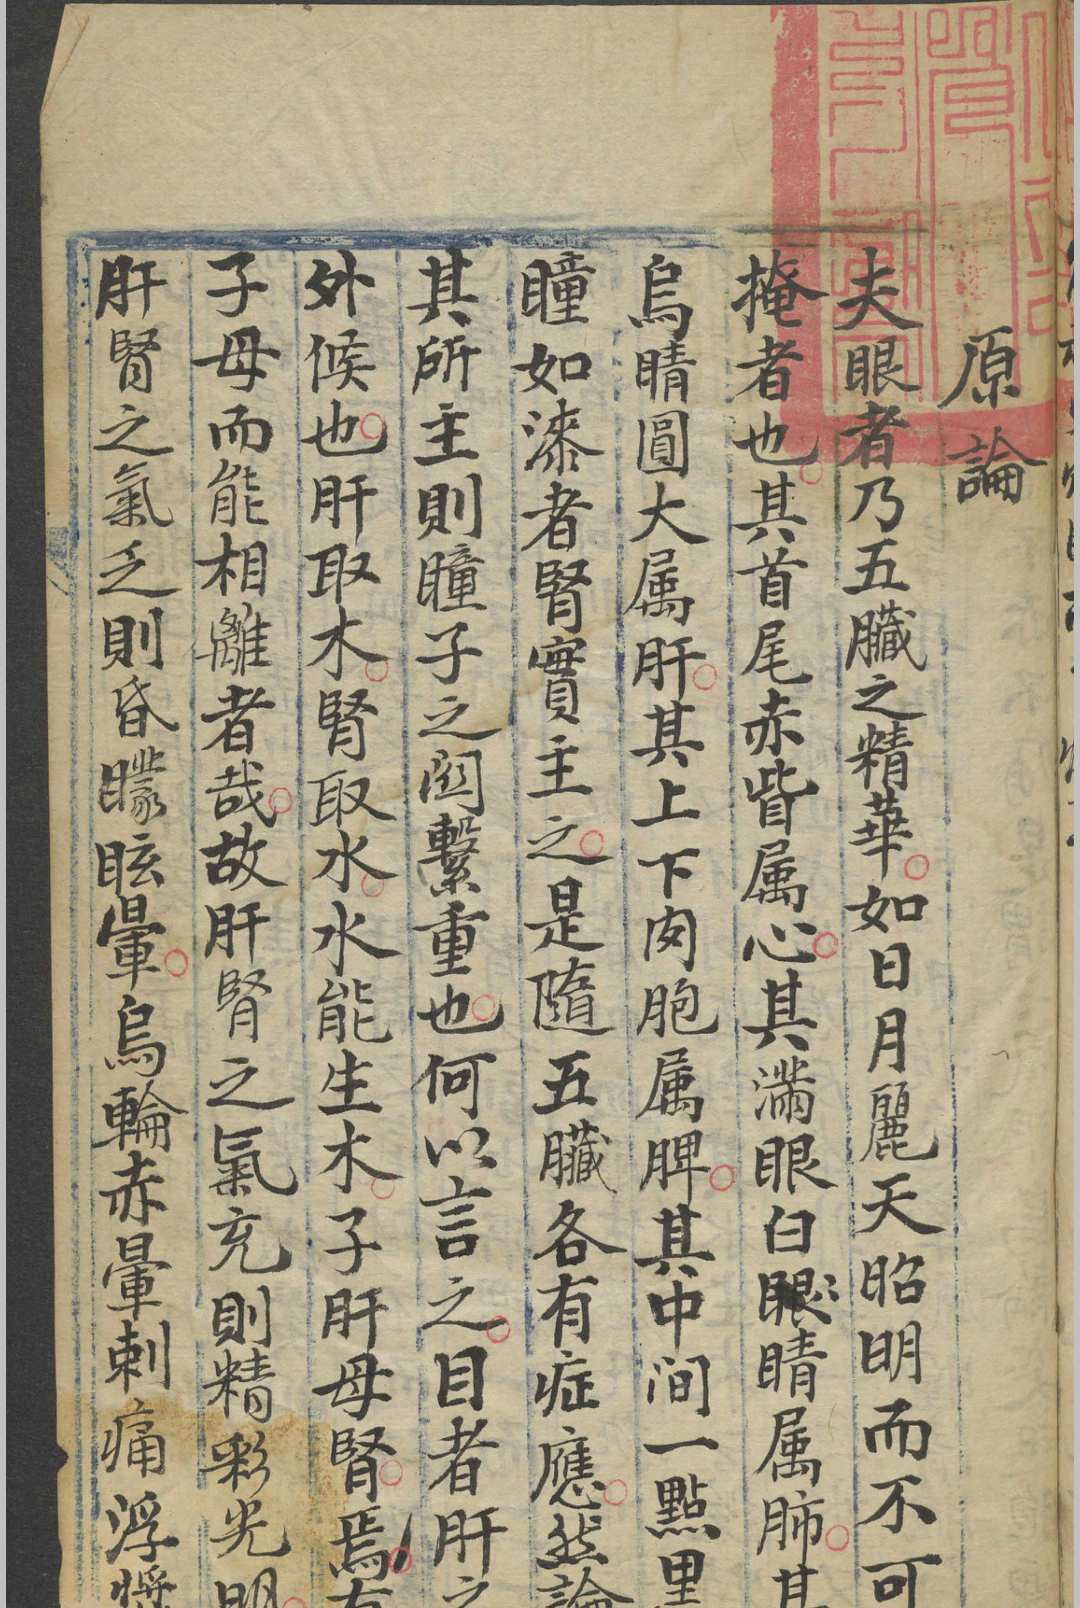 原論
夫眼者乃五臟之精華如日月麗天昭明而不可
掩者也其首尾赤眥属心其滿眼白眼睛属肺其
烏睛圓大属肝其上下肉胞属脾其中间一點黒
瞳如漆者腎實主之是隨五臟各有症應然論
其所主則瞳子之関繫重也何以言之目者肝之
外候也肝取木腎取水水能生木子肝母腎焉有
子母而能相離者哉故肝腎之氣充則精彩光明
肝腎之氣乏則昏矇眩暈烏輪赤暈刺痛浮漿